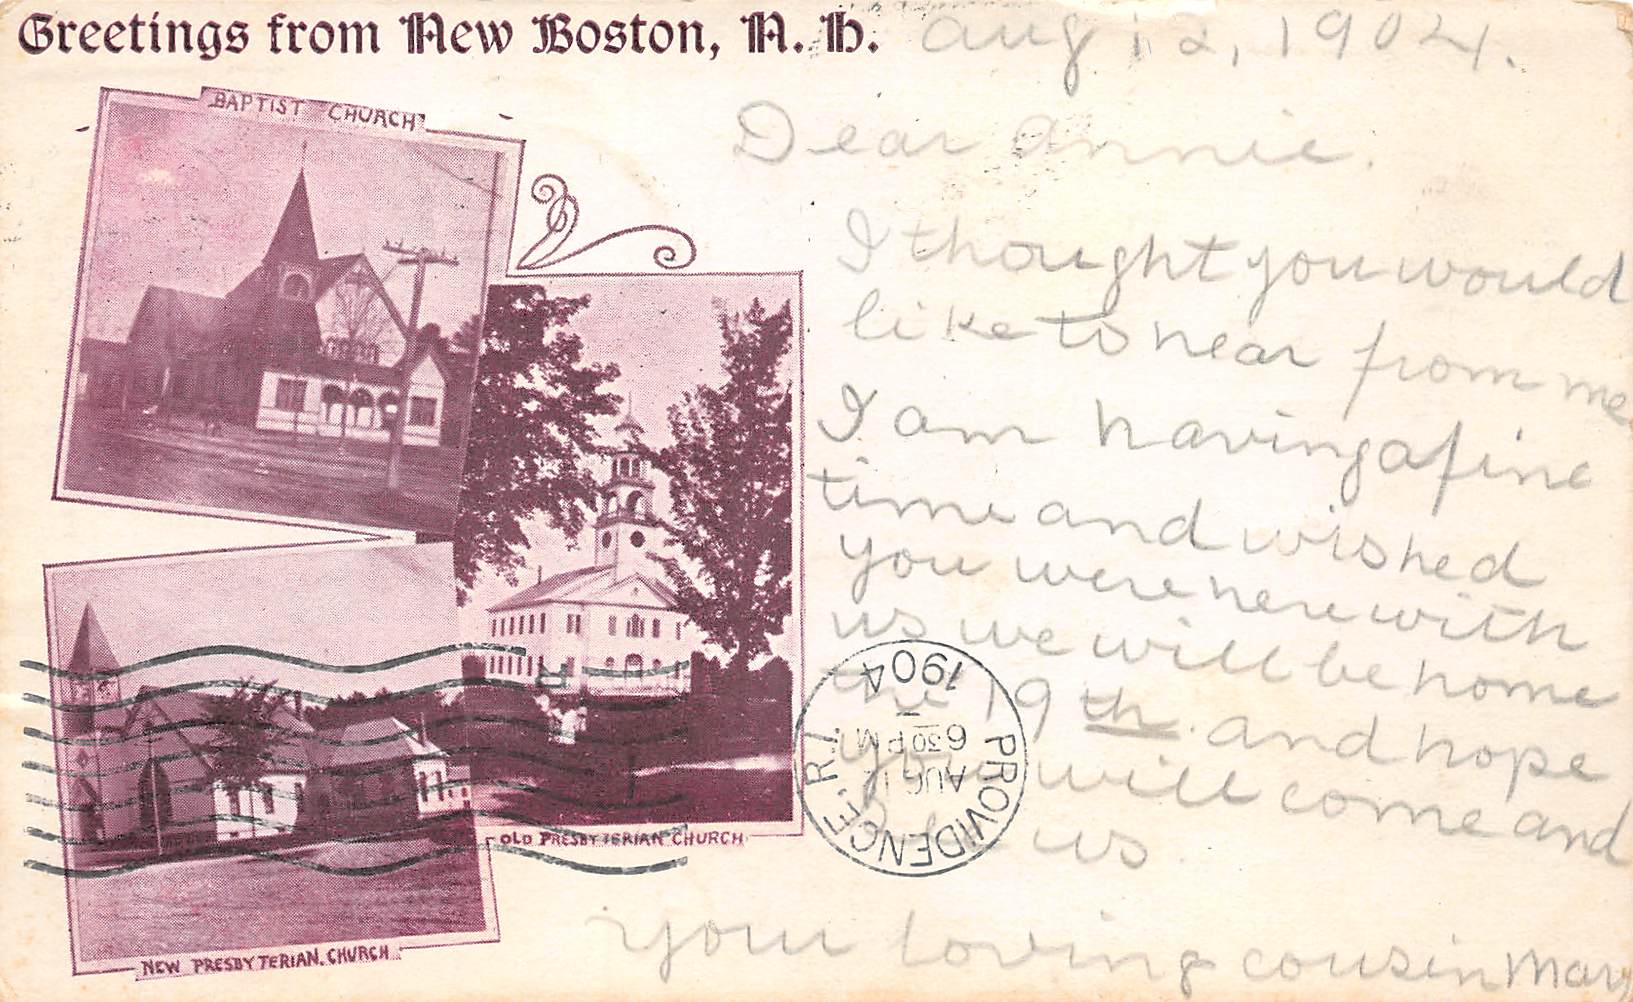 Greetings from New Boston, N. H.
Aug 12, 1904.
BAPTIST CHURCH
Dear Annie.
I thought you would
like to hear from me
I am having a fine
time and wished
you were here with
us we will be home
the 19th. and hope
you will come and
us
Your loving cousin Mary
OLD PRESBYTERIAN CHURCH
NEW PRESBYTERIAN. CHURCH
PROVIDENCE, R.I.
AUG 12
6 30 PM
1904